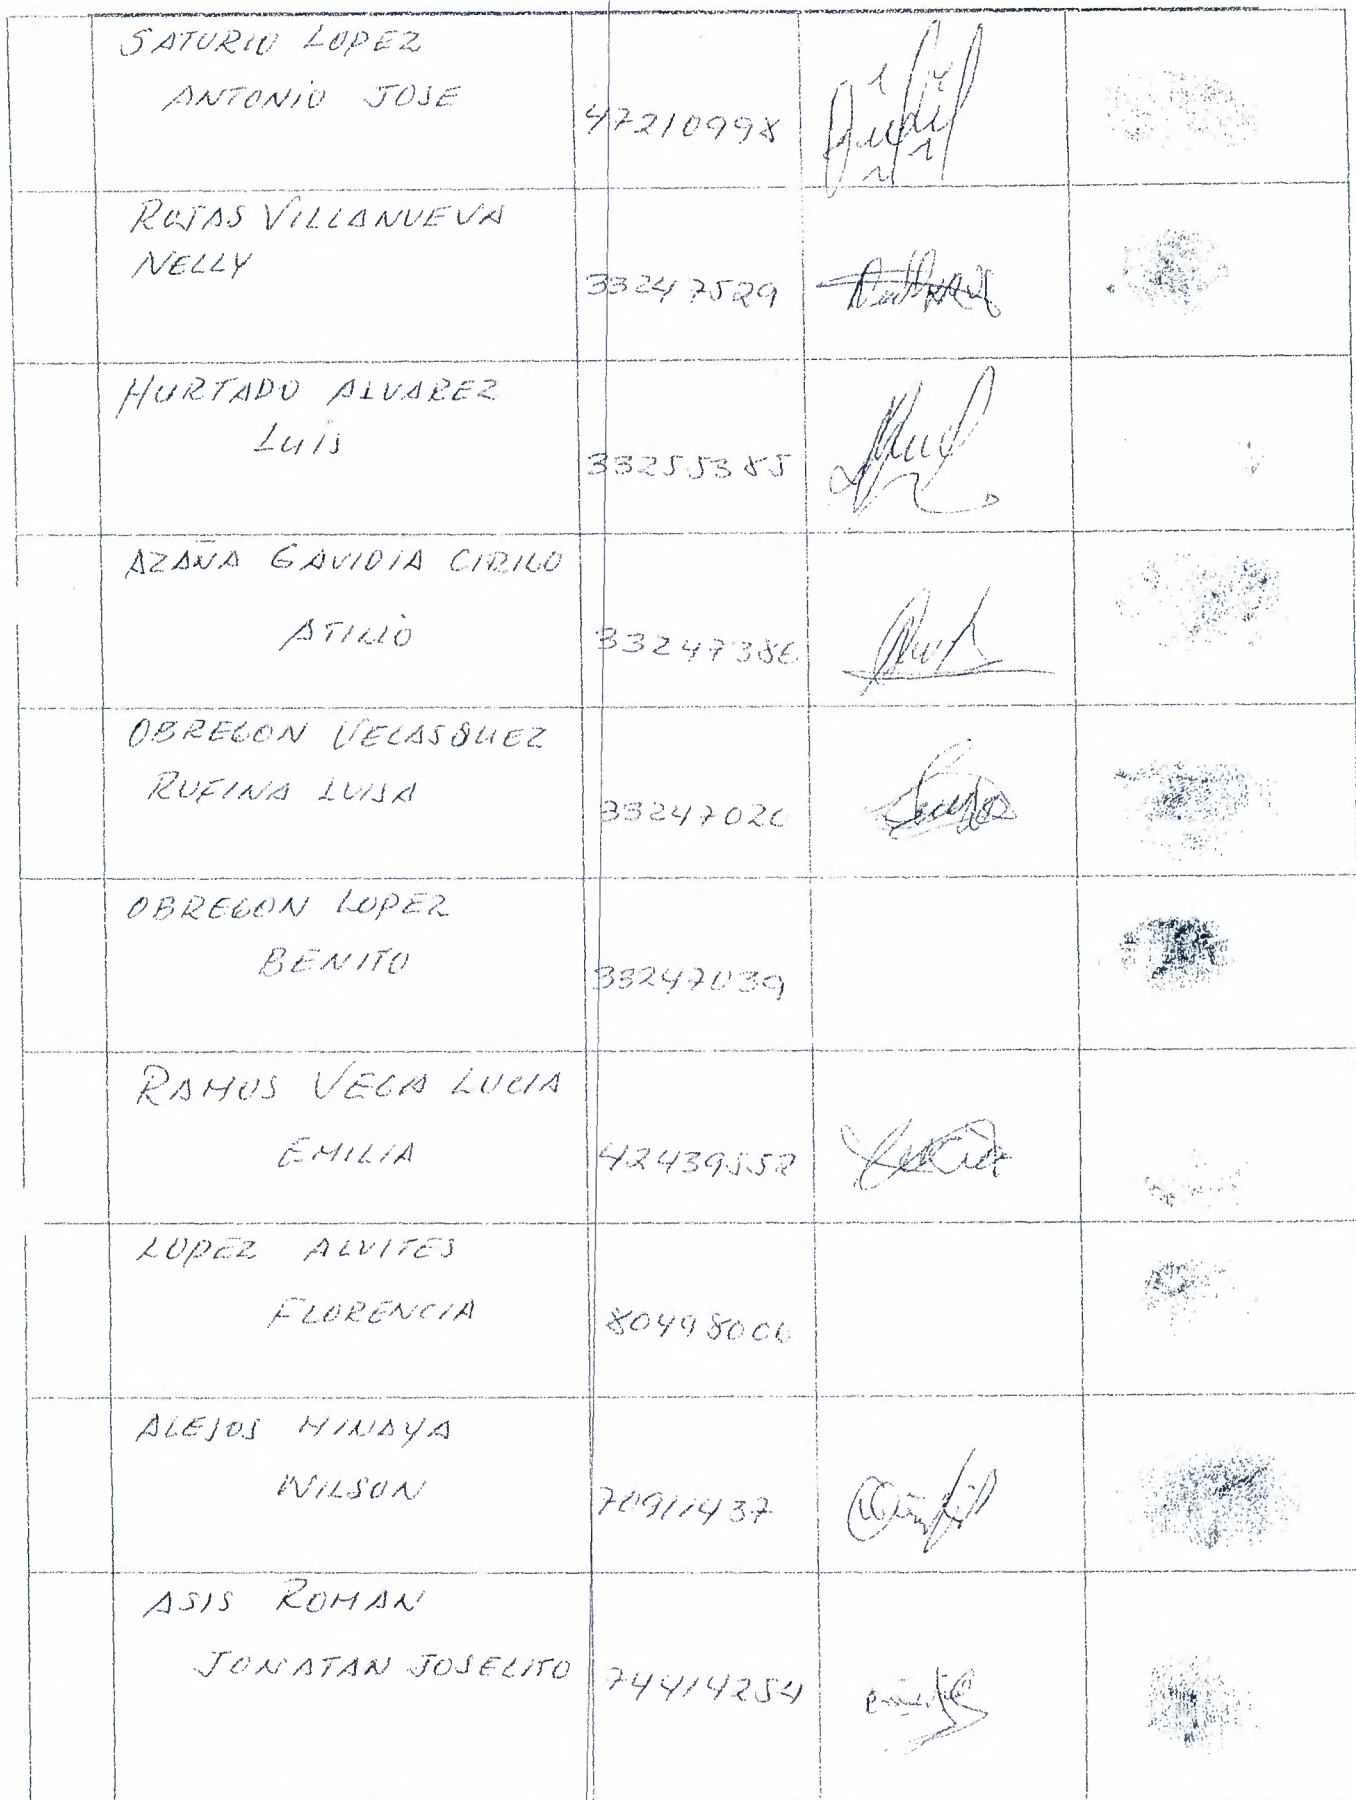 SATURIO LOPEZ
ANTONIO JOSE
47210998
ROJAS VILLANUEVA
NELLY
33247529
HURTADO ALVAREZ
LUIS
33255385
AZAÑA GAVIDIA CIRILO
ATILIO
33247386
OBREGON VELASQUEZ
RUFINA LUISA
33247026
OBREGON LOPEZ
BENITO
33247039
RAMOS VEGA LUCIA
EMILIA
42439552
LOPEZ ALVITES
FLORENCIA
80498006
ALEJOS MINAYA
WILSON
70911437
ASIS ROMAN
JONATAN JOSELITO
74414254